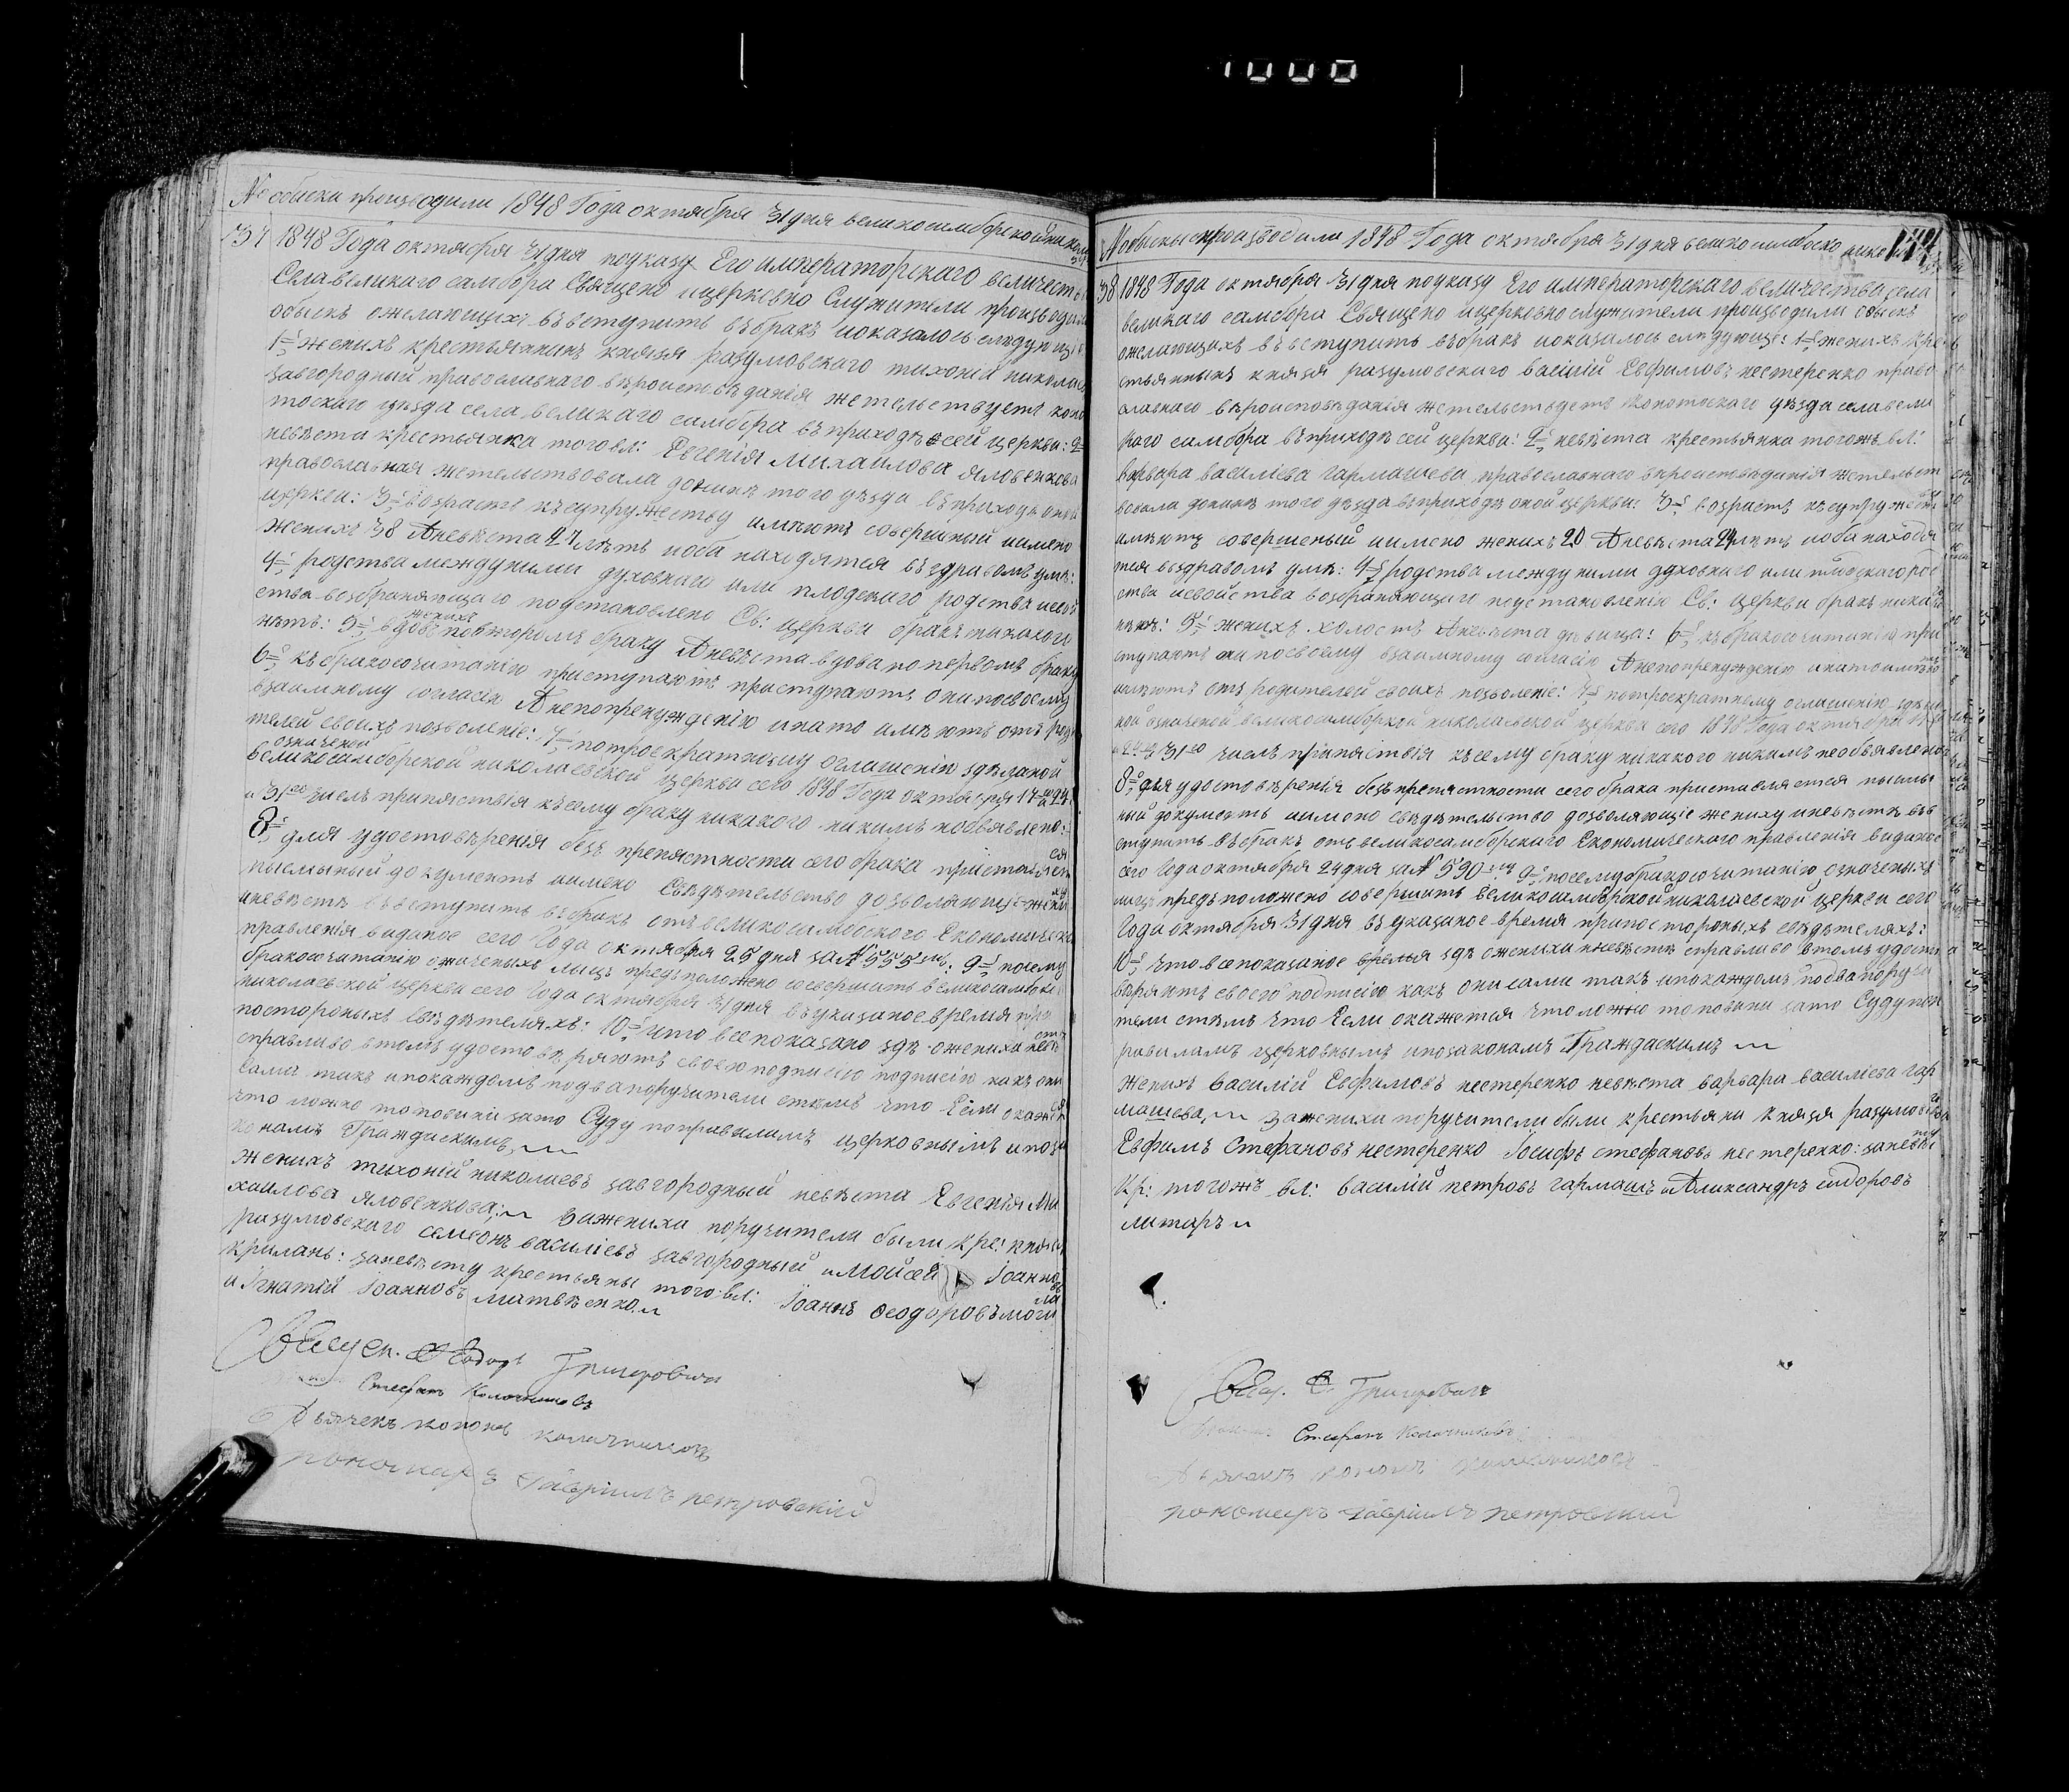 1000
№ обиски производили 1848 Года октября 31 дня великосамборской никола
37 1848 Года октября 31 дня поуказу Его императорского величества
Села великаго самбора Священо ицерковно Служители производили
обыскъ ожелающихъ въвступить въбракъ иоказалось следующе
1е женихъ крестьянинъ князя разумовского тихоній николаевъ
завгородный православнаго вѣроисповѣданія жетельствуетъ коно
топскаго уѣзда села великаго самбора въприходѣ сей церкви: 2е
невѣста крестьянка того вл: Евгенія михаилова яловенкова
православная жетельствовала донинѣ того уѣзда въприходѣ оной
церкви: 3е возрастъ къ супружеству имѣютъ совершеный иимено
женихъ 38 Аневѣста 27 лѣтъ иоба находятся въздравомъ умѣ:
4е родства междуними духовнаго или плодскаго родства исвой
ства возбраняющаго подстановлено Св: церкви бракъ никакого
нѣтъ: 5е женихъ вдовъ повторомъ браку Аневѣста вдова по первомъ браку
6е къ бракосочитанію приступаютъ приступаютъ они посвоему
взаимному согласію Анепопренужденію инато имѣютъ отъ роди
телей своихъ позволеніе: 7е потроекратному оглашенію здѣланой
означеной великосамборской николаевской церкви сего 1848 Года октября 17 24
и 31го числъ припятствія къ сему браку никакого никимъ необявлено:
8е для удостовѣренія безъ препятности сего брака приставляется
письмяный документъ иимено Свѣдѣтельство дозволяющіе жениху
иневѣстѣ въвступить въбракъ отъ великосамборского Економическаго
правленія виданое сего Года октября 25 дня за № 555: 9е посему
бракосочитанію означеныхъ лицъ предъположено совершить великосамборской
николаевской церкви сего Года октября 31 дня въуказаное время при
постороныхъ свѣдѣтеляхъ: 10е что все показано здѣ ожениха иневѣстѣ
справливо втомъ удостовѣряютъ своею подписью подписію какъ они
сами такъ ипокаждомъ подва поручители стѣмъ что Если окажется
что ложно топовини зато Суду поправиламъ церковнымъ ипоза
конамъ Граждаскимъ
женихъ тихоній николаевъ завгородный невѣста Евгенія Ми
хаилова яловенкова; зажениха поручители были кре: князя
разумовского семеонъ василіевъ завгородный и Мойсей Іоанновъ
криланъ: заневѣсту крестьяны того вл: Іоаннъ Феодоровъ моги
и Игнатій Іоанновъ матвѣенко
Священ. Феодоръ Григоровичъ
Стефанъ Колочниковъ
Дьячекъ кононъ калачниковъ
пономаръ Гавріилъ петровскій
№ обыски производили 1848 Года октября 31 дня великосамборско нико
38 1848 Года октября 31 дня поуказу Его императорского величества села
великаго самбора Священо ицерковно служители производили обыскъ
ожелающихъ въвступить въбракъ иоказалось следующе: 1е женихъ кре
стьянинъ князя разумовскаго василій Евфимовъ нестеренко право
славнаго вѣроисповѣданія жетельствуетъ Конотоскаго уѣзда села вели
каго самбора въприходѣ сей церкви: 2е невѣста крестьянка тогожъ вл:
варвара василіева гармашева православнаго вѣроисповѣданія жетельст
вовала донинѣ того уѣзда въприходѣ оной церкви: 3е возрастъ къ супружеству
имѣютъ совершеный иимено женихъ 20 Аневѣста 24 лѣтъ иоба находя
тся въздравомъ умѣ: 4е родства между ними духовнаго или плодскаго род
ства исвойства возбраняющаго подстановленію Св: церкви бракъ никакого
нѣтъ: 5е женихъ холостъ Аневѣста дѣвица: 6е къ бракосочитанію при
ступаютъ они посвоему взаимному согласію Анепопренужденію инатоимѣютъ
имѣютъ отъ родителей своихъ позволеніе: 7е потроекратному оглашенію здѣла
ной означеной великосамборской николаевской церкви сего 1848 Года октября 17
24 и 31го числъ припятствія къ сему браку никакого никимъ необявлено
8е для удостовѣренія безъпретятности сего брака приставляется письмя
ный документъ иимено свѣдѣтельство дозволяющіе жениху иневѣстѣ във
ступить въбракъ отъ великосамборского Економическаго правленія виданое
сего Года октября 24 дня за № 590 9е посему бракосочитанію означеныхъ
лицъ предъположено совершить великосамборской николаевской церкви сего
Года октября 31 дня въуказаное время припостороныхъ свѣдѣтеляхъ:
10е что все показаное время здѣ ожениха иневѣстѣ справливо втомъ удосто
варяютъ своею подписію какъ они сами такъ ипокаждомъ подва поручи
тели стѣмъ что Если окажется что ложно топовини зато Суду поп
равиламъ церковнымъ ипозаконамъ Граждаскимъ
женихъ василій Евфимовъ нестеренко невѣста варвара василіева гар
машева, зажениха поручители были крестьяни князя разумовскаго
Евфимъ Стефановъ нестеренко Іосифъ стефановъ нестеренко: заневѣсту
кр: тогожъ вл: василій петровъ гармашъ и Александръ сидоровъ
литаръ
Свящ. Ф. Григоровичъ
Стефанъ Колочниковъ
Дьячекъ кононъ калачниковъ
пономаръ Гавріилъ петровскій